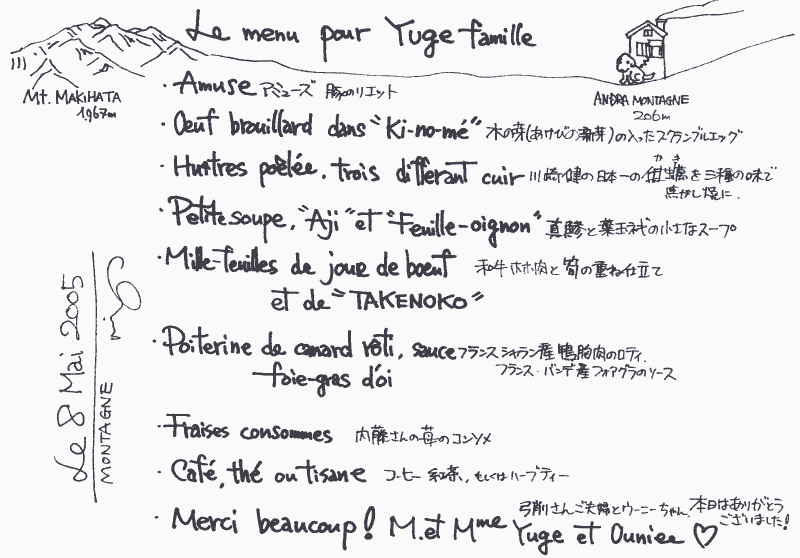 Le menu pour Yuge famille
Mt. MAKIHATA
1967m
ANDRA MONTAGNE
206m
・Amuse アミューズ 豚のリエット
・Œuf brouillard dans "Ki-no-mé" 木の芽(あけびの新芽)の入ったスクランブルエッグ
・Huîtres poêlée, trois differant cuir 川崎健の日本一の牡蠣を三種の味で
かき
焦がし焼に.
・Petite soupe, "Aji" et "Feuille-oignon" 真鯵と葉玉ネギの小さなスープ
・Mille-feuilles de joue de boeuf 和牛ホホ肉と筍の重ね仕立て
et de "TAKENOKO"
・Poiterine de canard rôti, sauce フランス シャラン産 鴨胸肉のロティ.
foie-gras d'oi フランス・バンデ産フォアグラのソース
・Fraises consommes 内藤さんの苺のコンソメ
・Café, thé ou tisane コーヒー 紅茶、もしくはハーブティー
弓削さんご夫婦とウーニーちゃん. 本日はありがとう
ございました!
・Merci beaucoup! M. et Mme Yuge et Ouniee ♡
Le 8 Mai 2005
MONTAGNE